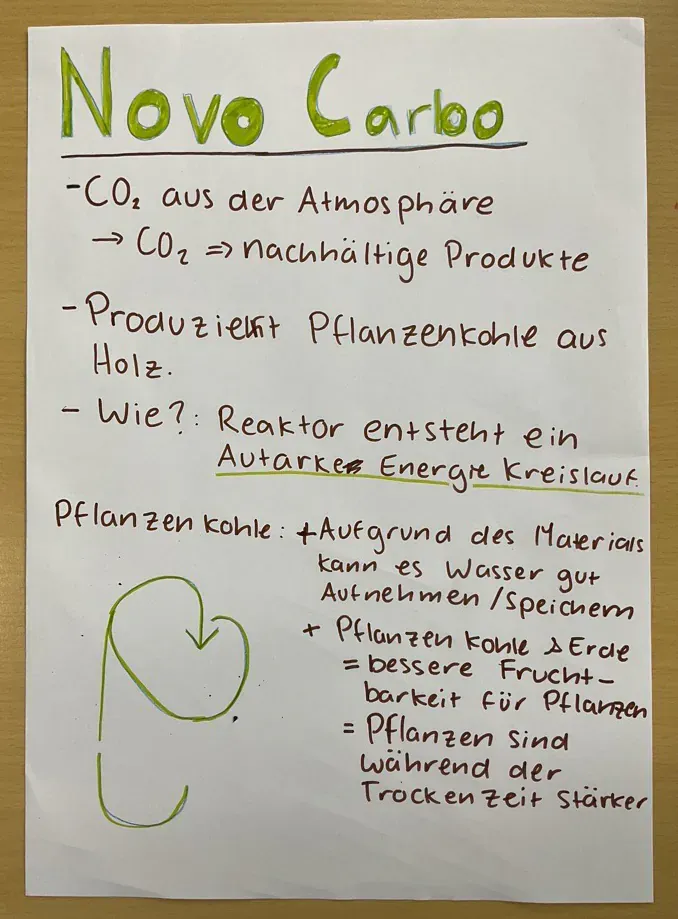 Novo Carbo
- CO₂ aus der Atmosphäre
→ CO₂ ⇒ nachhältige Produkte
- Produziert Pflanzenkohle aus
Holz.
- Wie?: Reaktor entsteht ein
Autarke Energie Kreislauf.
Pflanzenkohle: + Aufgrund des Materials
kann es Wasser gut
Aufnehmen/Speichern
+ Pflanzen kohle & Erde
= bessere Frucht-
barkeit für Pflanzen
= Pflanzen sind
während der
Trockenzeit stärker